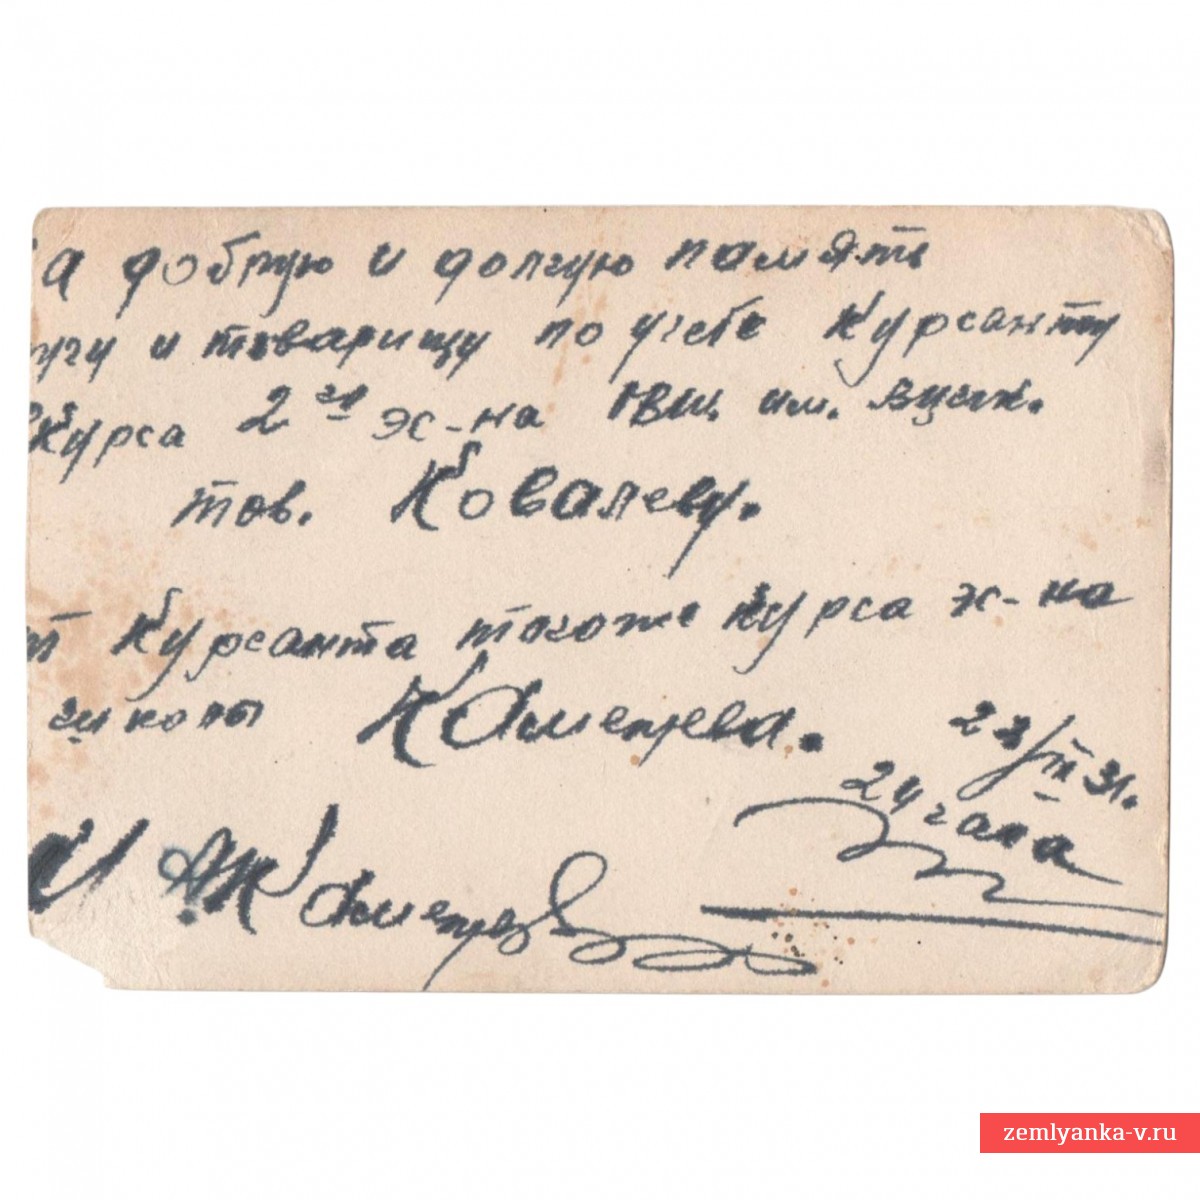 а добрую и долгую память
угу и товарищу по учебе Курсанту
Курса 2го эс-на ЮВШ им. ВЦИК.
тов. Ковалеву.
т Курсанта тогоже Курса эс-на
школы
24 часа
zemlyanka-v.ru